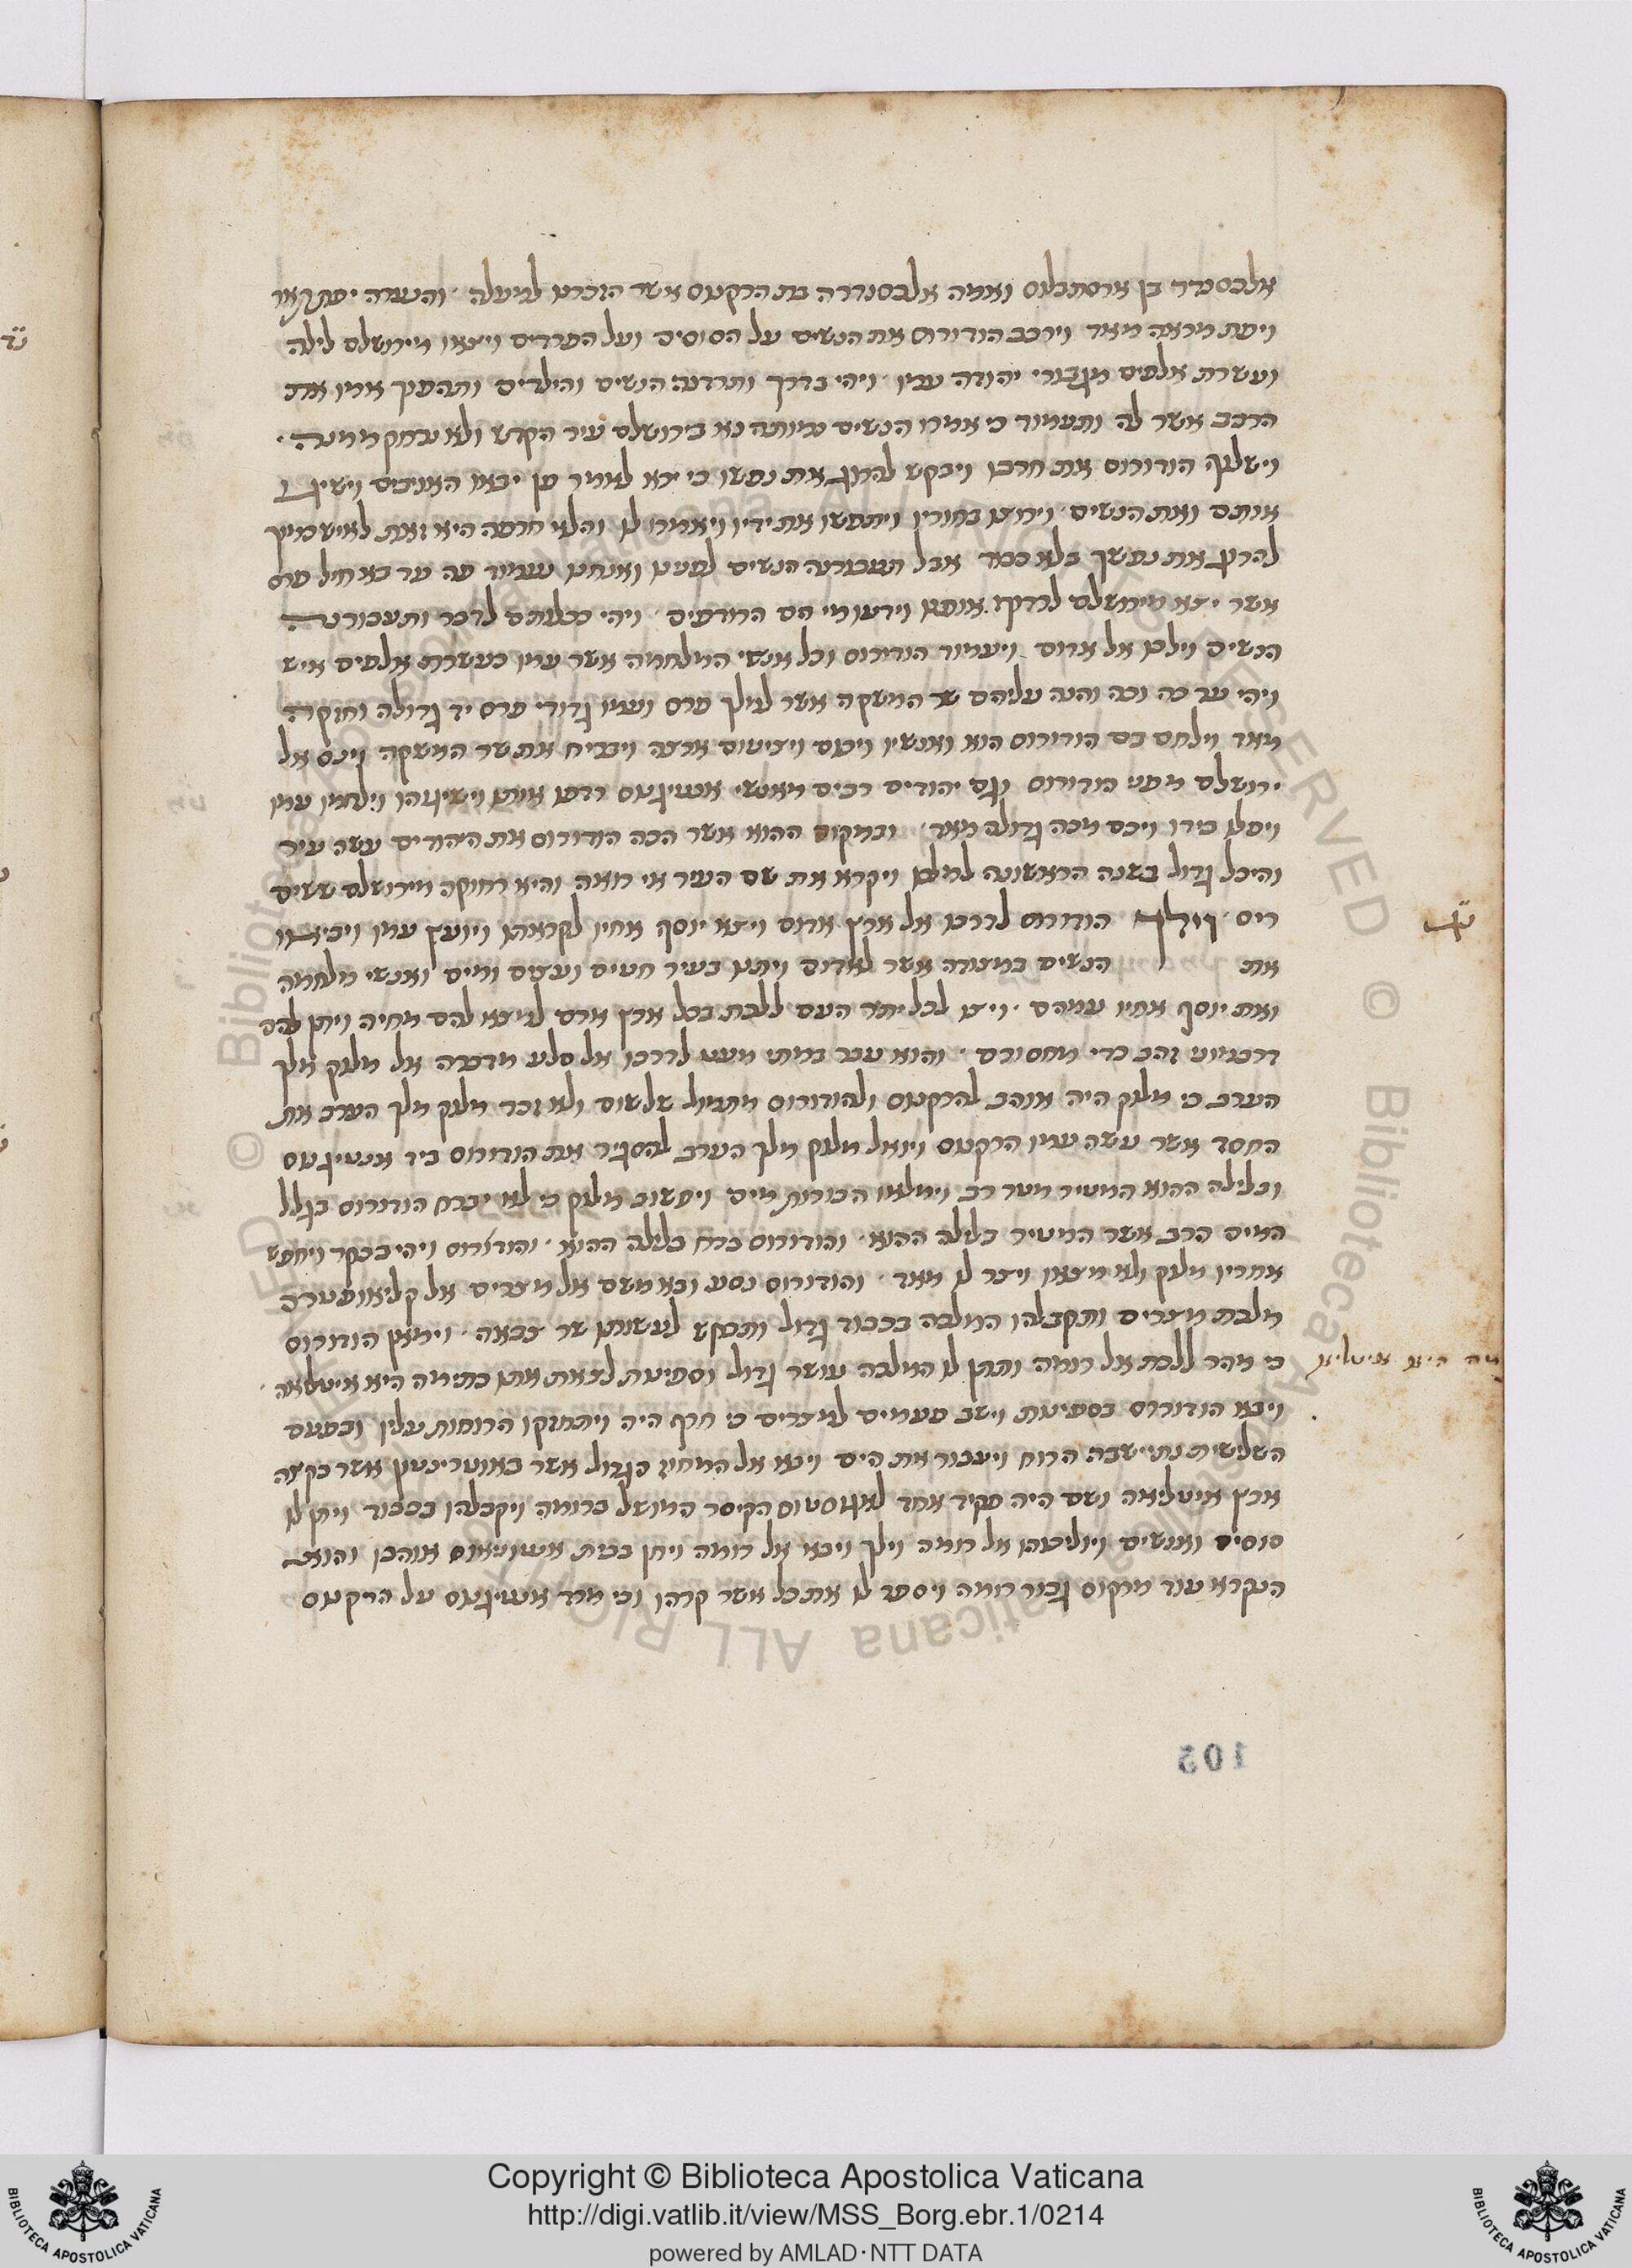 אלכסנדר בן ארסתבלוס ואמה אלכסנדרה בת הרקנוס אשר הזכרנו למעלה והנערה יפת תאר
ויפת מראה מאד וירכב הורודוס את הנשים על הסוסים ועל הפרדים ויצאו מירושלם לילה
ועשרת אלפים מגבורי יהודה עמו ויהי בדרך ותרדנה הנשים והילדים ותהפוך אמו את
הרכב אשר לה ותעמוד כי אמרו הנשים נמותה נא בירושלם עיר הקדש ולא נרחק ממנה
וישלוף הורודוס את חרבו ויבקש להרוג את נפשו כי ירא לאמר פן יבאו האויבים וישיגו
אותם ואת הנשים וירוצו בחוריו ויתפשו את ידיו ויאמרו לו והלא חרפה היא זאת לאיש כמוך
להרוג את נפשך בלא כבוד אבל תעבורנה הנשים לפנינו ואנחנו נעמוד פה עד בא חיל פרס
אשר יצא מירושלם לרדוף אותנו וידעו מי הם הרודפים ויהי ככלותם לדבר ותעבורנה
הנשים וילכו אל אדום ויעמוד הורודוס וכל אנשי המלחמה אשר עמו כעשרת אלפים איש
ויהי עד כה וכה והנה עליהם שר המשקה אשר למלך פרס ועמו גדודי פרס יד גדולה וחזקה
מאד וילחם בם הורודוס הוא ואנשיו ויכום ויפיצום ארצה ויבריח את שר המשקה וינס אל
ירושלם מפני הורודוס וגם יהודים רבים מאנשי אנטיגנוס רדפו אותו וישיגוהו וילחמו עמו
ויפלו בידו ויכם מכה גדולה מאד ובמקום ההוא אשר הכה הורודוס את היהודים עשה עיר
והיכל גדול בשנה הראשונה למלכו ויקרא את שם העיר אי רואה והיא רחוקה מירושלם ששים
ריס וילך הורודוס לדרכו אל ארץ אדום ויצא יוסף אחיו לקראתו ויועץ עמו ויביאו
את הנשים במצודה אשר לאדום ויתנו בעיר חטים ועצים ומים ואנשי מלחמה
ואת יוסף אחיו עמהם ויצו לכל יתר העם ללכת בכל ארץ אדום למצא להם מחיה ויתן להם
דרכמוני זהב כדי מחסורם והוא עבר במתי מעט לדרכו אל סלע מדברה אל מלוק מלך
הערב כי מלוק היה אוהב להרקנוס ולהורודוס מתמול שלשום ולא זכר מלוק מלך הערב את
החסד אשר עשה עמו הרקנוס ויואל מלוק מלך הערב להסגיר את הורודוס ביד אנטיגנוס
ובלילה ההוא המטיר מטר רב וימלאו הבורות מים ויחשוב מלוק כי לא יברח הורודוס בגלל
המים הרב אשר המטיר בלילה ההוא והורודוס ברח בלילה ההוא והורודוס ויהי בבקר ויחפש
אחריו מלוק ולא מצאו ויצר לו מאד והורודוס נסע ובא משם אל מצרים אל קליאופטרה
מלכת מצרים ותקבלהו המלכה בכבוד גדול ותבקש לעשותו שר צבאה וימאן הורודוס
כי מהר ללכת אל רומה ותתן לו המלכה עושר גדול וספינות לצאת אותו כתימה היא איטליאה
ויבא הורודוס בספינות וישב פעמים למצרים כי חרף היה ויתחזקו הרוחות עליו ובפעם
השלישית נתישבה הרוח ויעבור את הים ויבא אל המחוז הגדול אשר באוטרינטו אשר בקצה
ארץ איטליאה ושם היה פקיד אחד לאגוסטוס הקיסר המושל ברומה ויקבלהו בכבוד ויתן לו
סוסים ואנשים ויוליכוהו אל רומה וילך ויבא אל רומה ויחן בבית אנטוניאוס אוהבו והוא
הנקרא עוד מרקוס גבור רומה ויספר לו את כל אשר קרהו וכי מרד אנטיגנוס על הרקנוס
102
Copyright © Biblioteca Apostolica Vaticana
http://digi.vatlib.it/view/MSS_Borg.ebr.1/0214
powered by AMLAD·NTT DATA
BIBLIOTECA APOSTOLICA VATICANA
BIBLIOTECA APOSTOLICA VATICANA